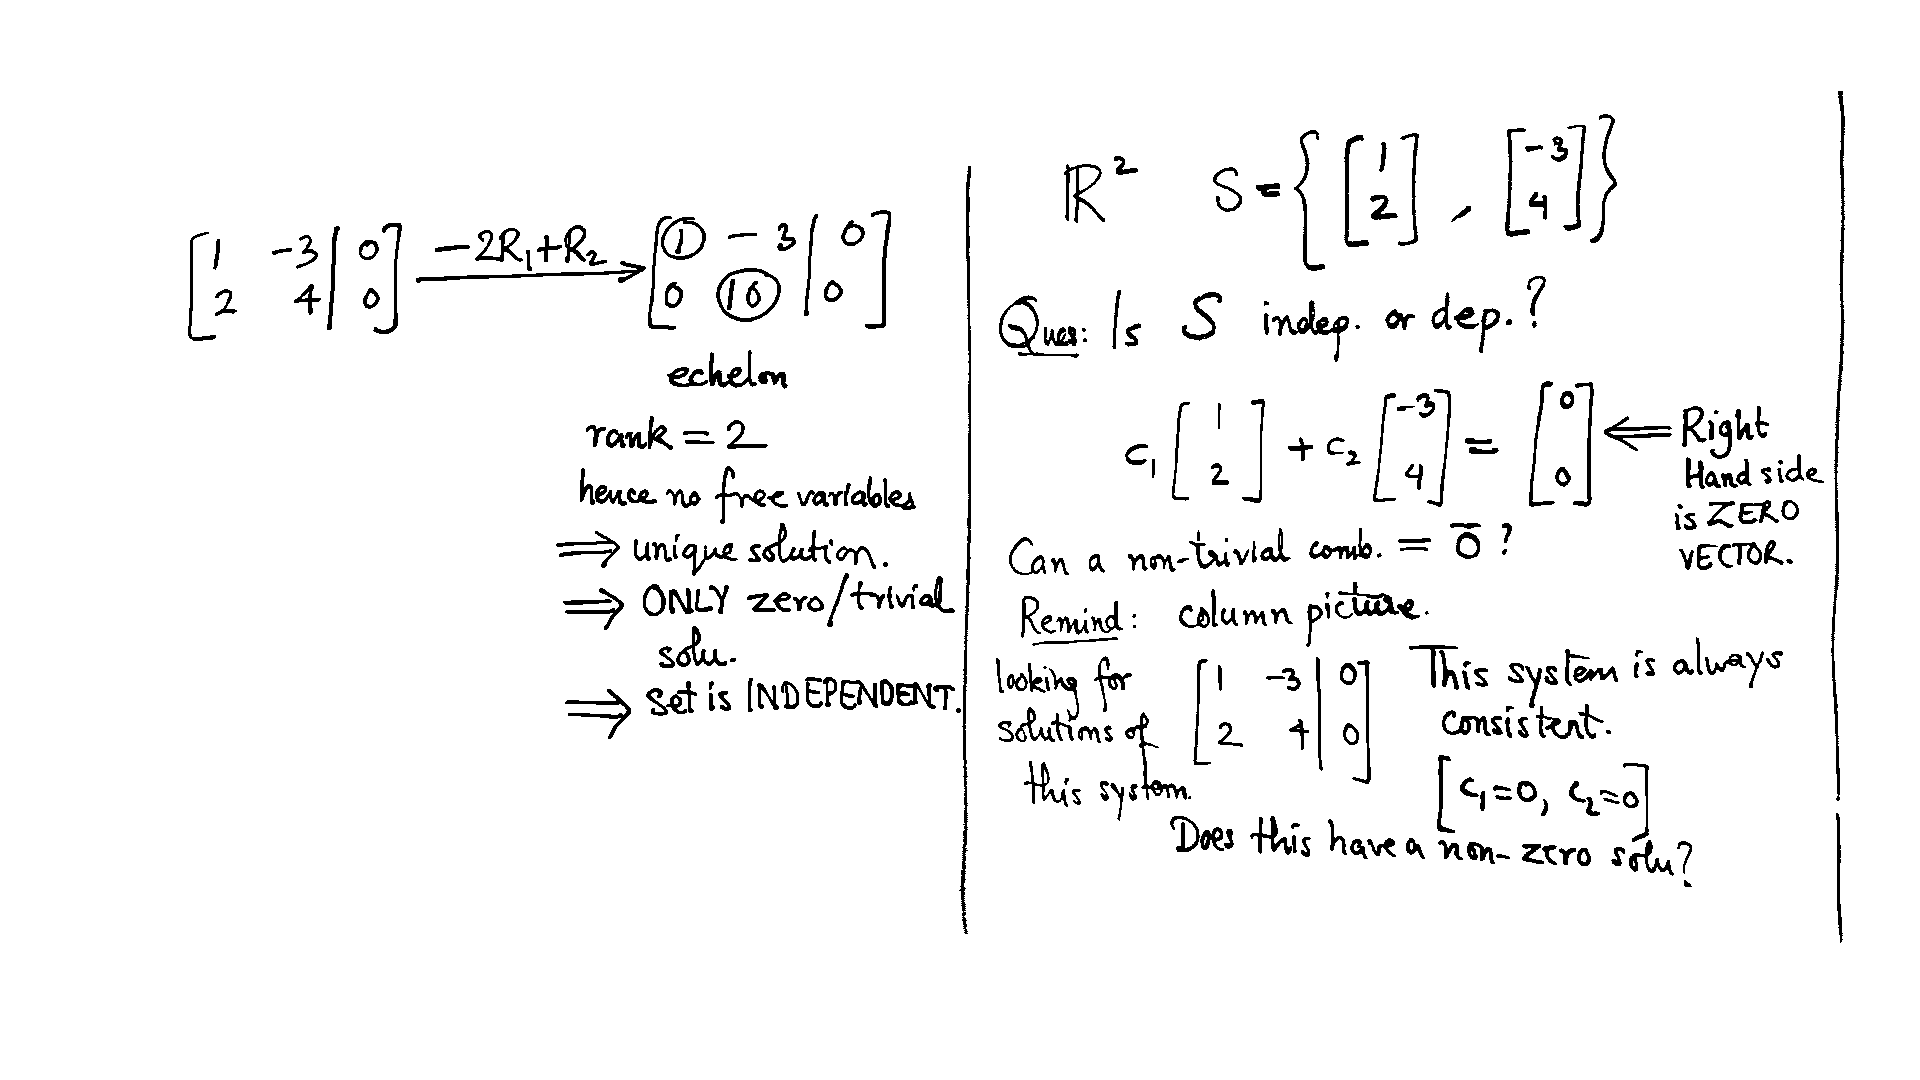 [1 -3 | 0] -2R₁+R₂ → [① -3 | 0]
[2 4 | 0] [0 ⑩ | 0]
echelon
rank = 2
hence no free variables
⟹ unique solution.
⟹ ONLY zero/trivial
solu.
⟹ set is INDEPENDENT.
ℝ² S = { [1 2] , [-3 4] }
Ques: Is S indep. or dep.?
c₁ [1 2] + c₂ [-3 4] = [0 0] ⟸ Right
Hand side
is ZERO
VECTOR.
Can a non-trivial comb. = 0̅ ?
Remind: column picture.
looking for
solutions of
this system.
[1 -3 | 0]
[2 4 | 0]
This system is always
consistent.
[c₁=0, c₂=0]
Does this have a non-zero solu?